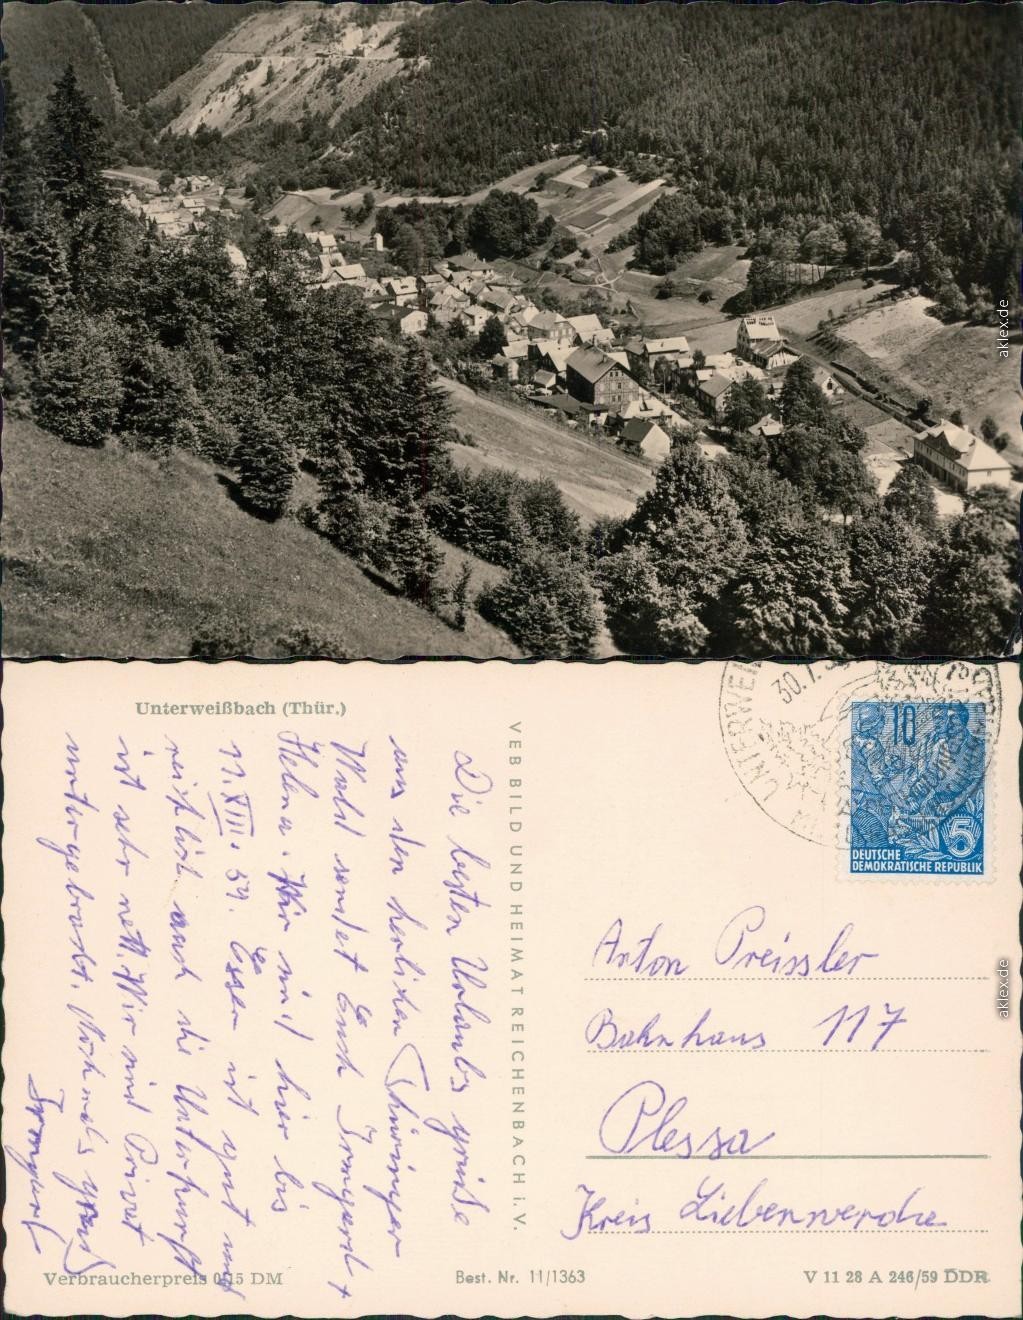 aklex.de
Unterweißbach (Thür.)
Die besten Urlaubs grüße
aus den herlichen Thüringer
Wald sendet Euch Irmgard +
Helena. Wir sind hier bis
11. VIII. 59. Essen ist gut und
reichlich auch die Unterkunft
ist sehr nett. Wir sind Privat
untergebracht. Nochmals Gruß
Irmgard
VEB BILD UND HEIMAT REICHENBACH i. V.
30.7.
10
5
DEUTSCHE
DEMOKRATISCHE REPUBLIK
Anton Preissler
Bahnhaus 117
Plessa
Kreis Liebenwerda
aklex.de
Verbraucherpreis 0,15 DM
Best. Nr. 11/1363
V 11 28 A 246/59 DDR